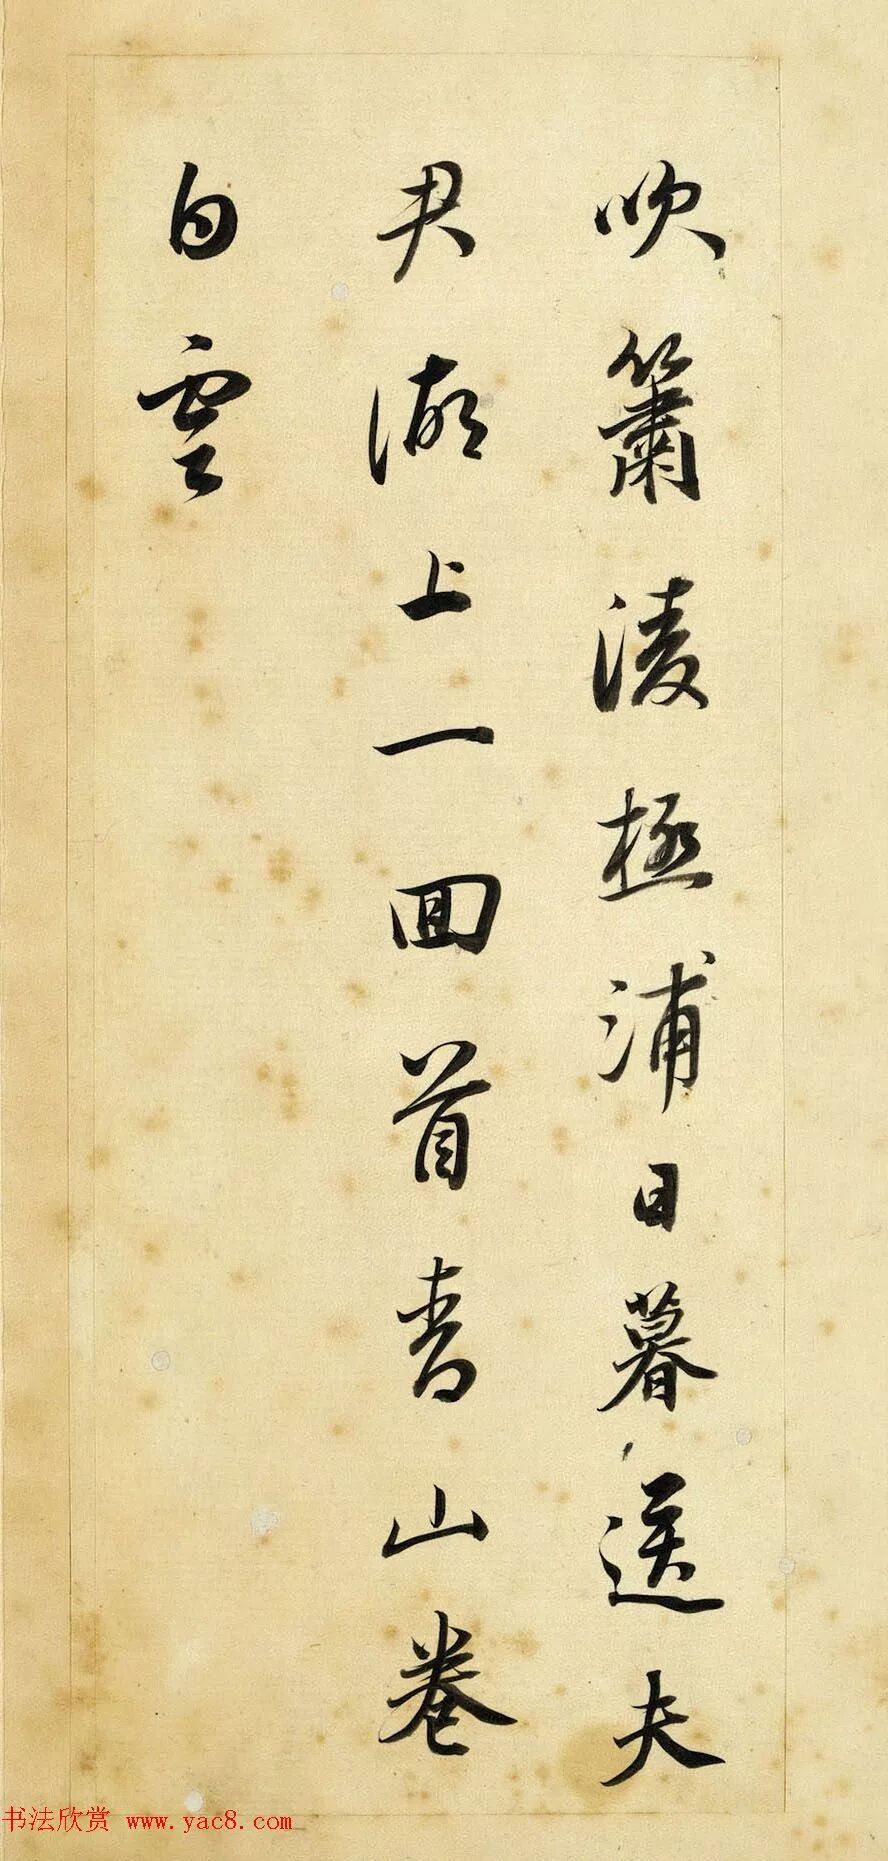 吹簫淩極浦日暮送夫
君湖上一回首青山卷
白雲
书法欣赏 www.yac8.com